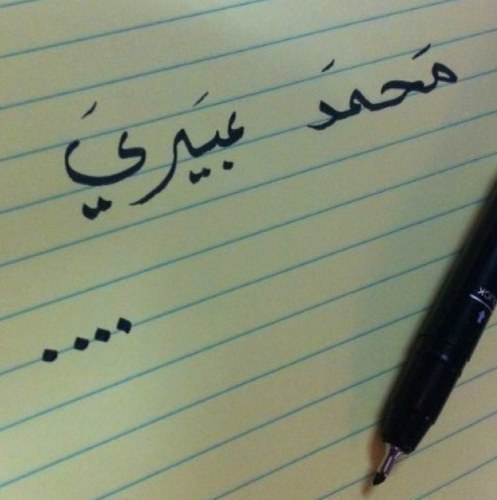 مَحمدَ بميَريَ
....